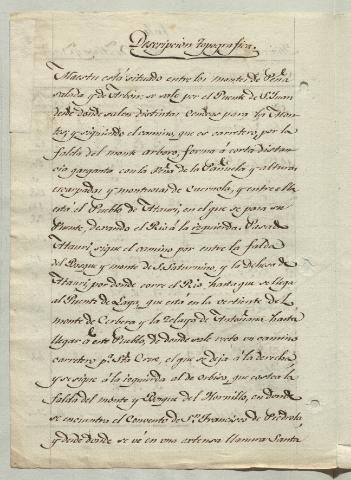 Descripcion Topografica.
Maestu está situado entre los montes de Peña
salada y de Arbin: se sale por el Puente de S. Juan
desde donde salen distintas sendas para los Mon-
tes; y siguiendo el camino, que es carretero, por la
falda del monte arboro, forma á corta distan-
cia garganta con la Peña de la y alturas
escarpadas y montuosas de , y entre ella
está el Pueblo de Atauri, en el que se pasa su
Puente, dexando el Rio á la izquierda. Pasado
Atauri, sigue el camino por entre la falda
del Bosque y monte de S. Saturnino, y la Dehesa de
Atauri, por donde corre el Rio, hasta que se llega
al Puente de Laga, que está en la vertiente del
monte de Cerbera y la de Antoñana hasta
llegar á este Pueblo, de donde sale recto un camino
carretero pa. Sta. Cruz, el que se deja á la derecha
y se sigue á la izquierda al de Orbiso, que costea la
falda del monte y Bosque del Hornillo, en donde
se encuentra el Convento de Sn. Francisco de Piedrola,
y desde donde se vé en una extensa llanura Santa